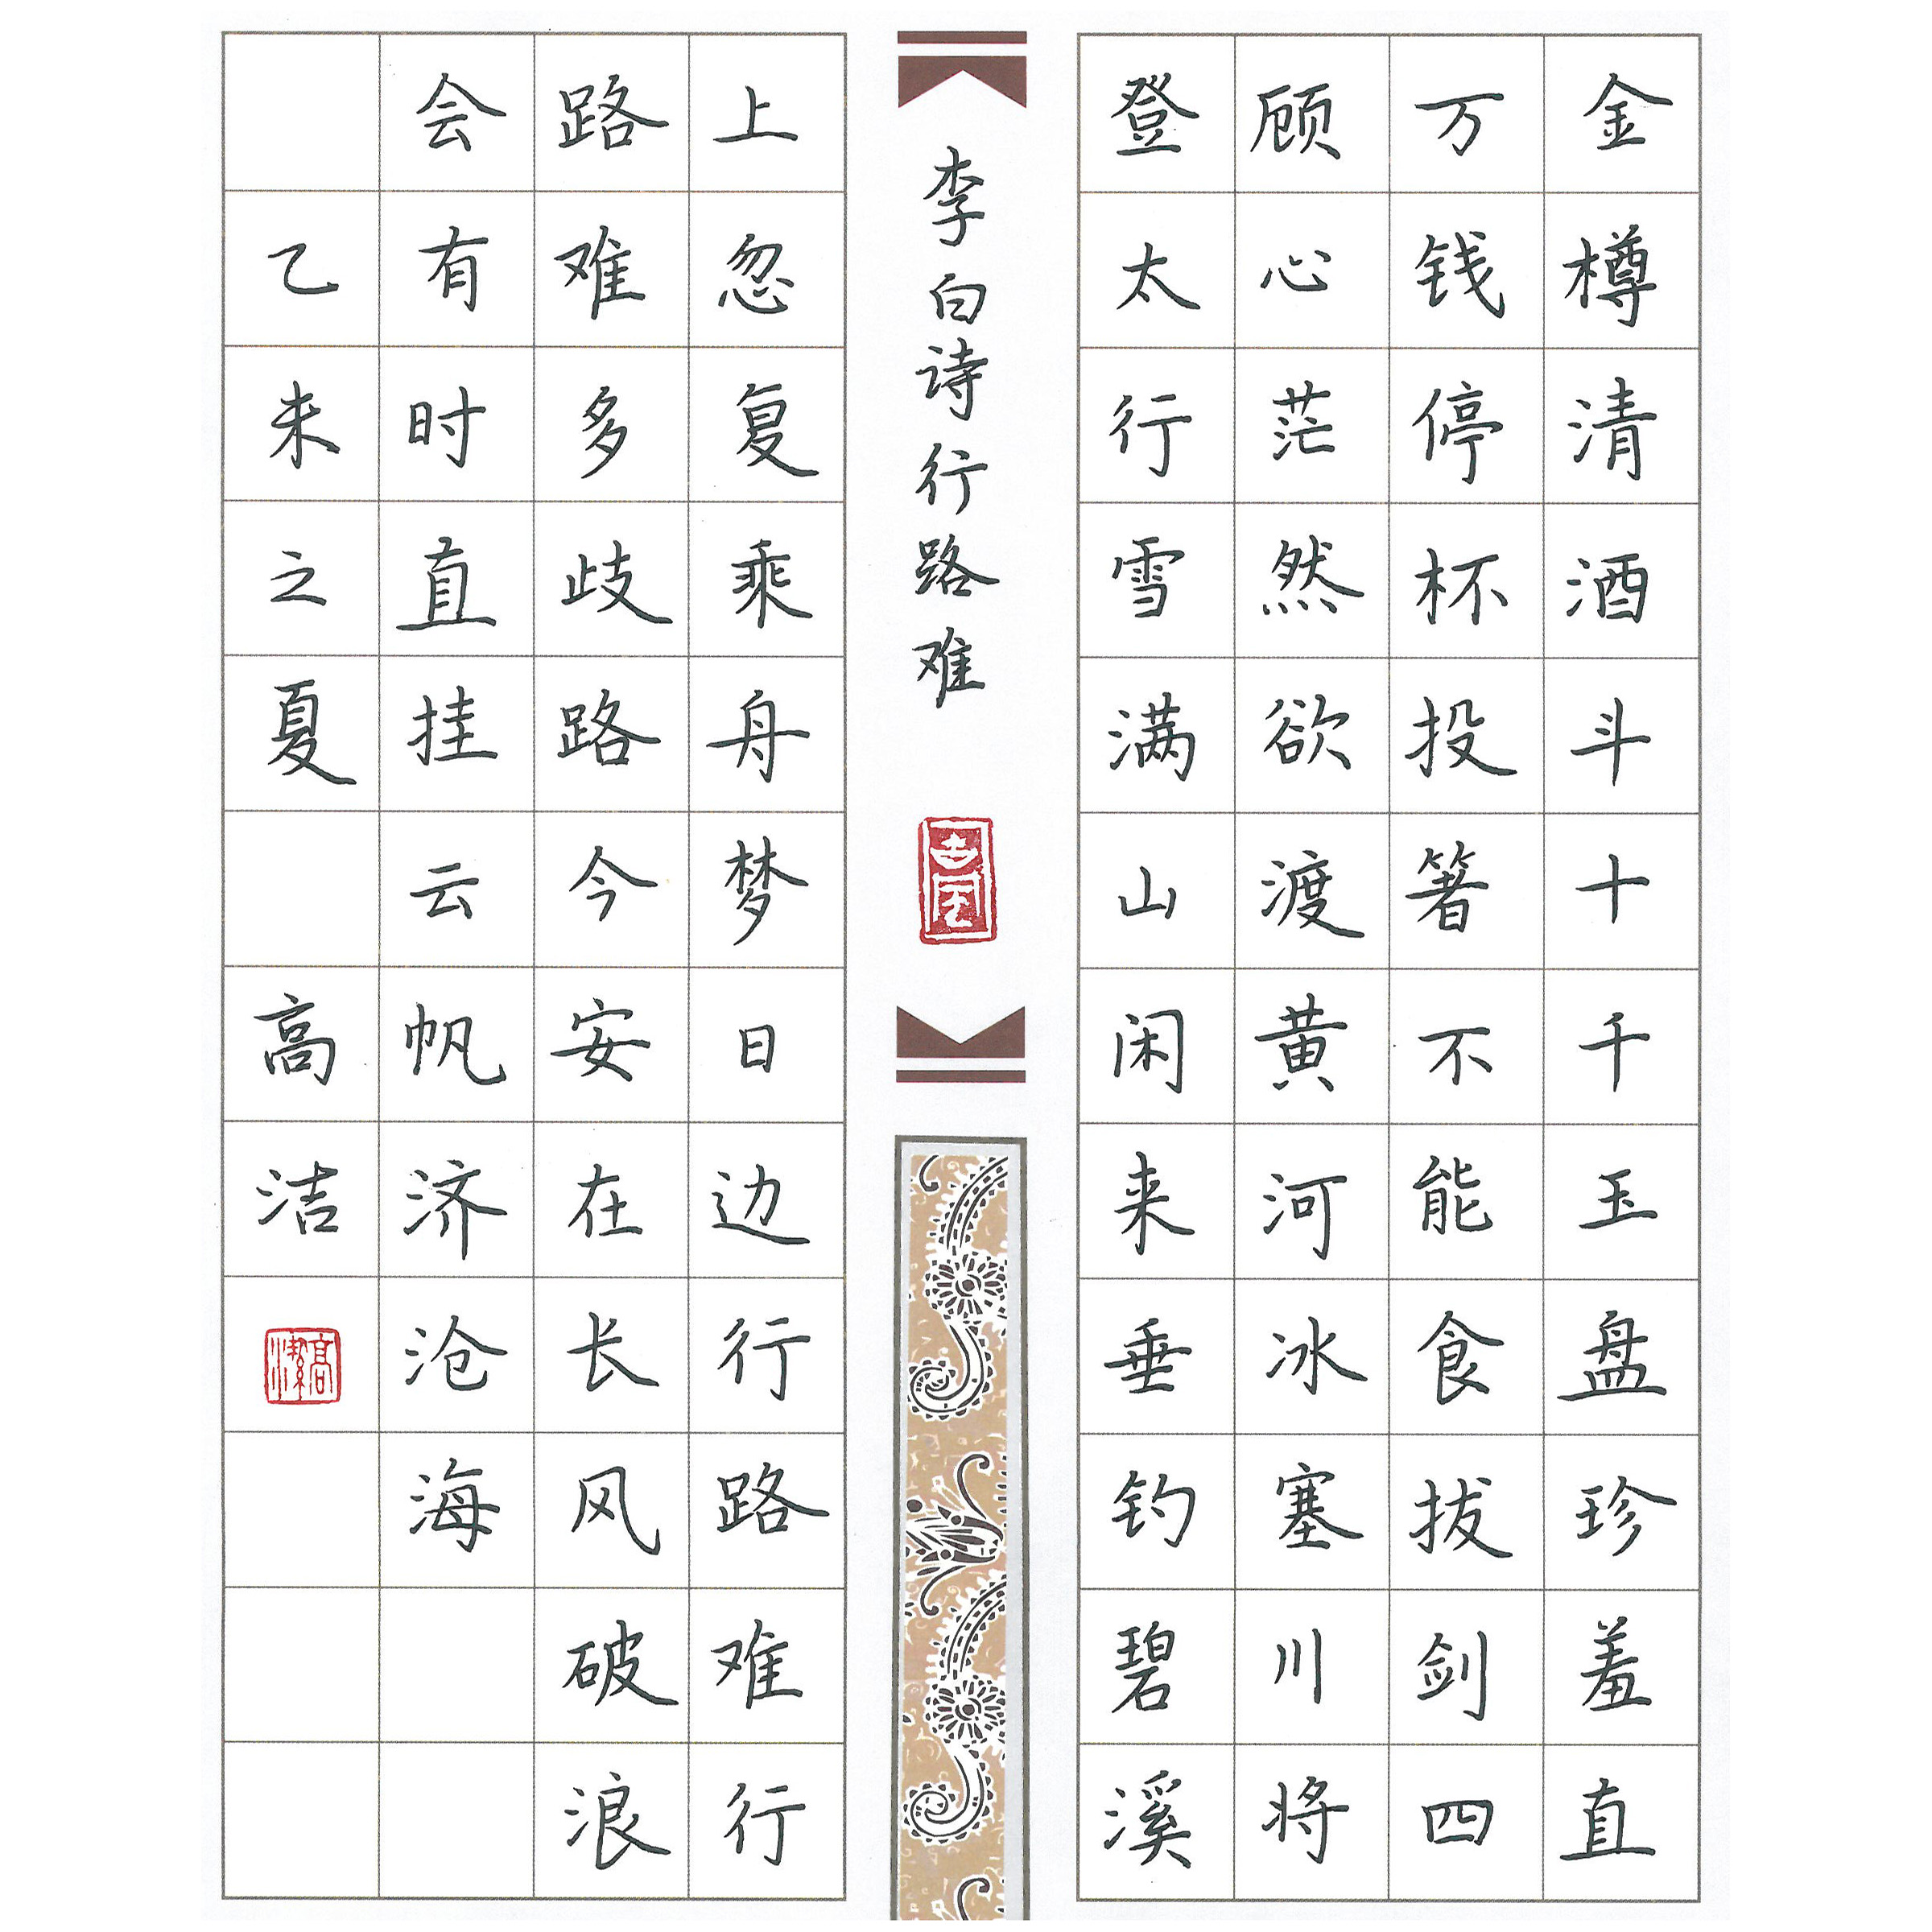 金樽清酒斗十千玉盘珍羞直
万钱停杯投箸不能食拔剑四
顾心茫然欲渡黄河冰塞川将
登太行雪满山闲来垂钓碧溪
李白诗行路难
上忽复乘舟梦日边行路难行
路难多歧路今安在长风破浪
会有时直挂云帆济沧海
乙未之夏 高洁
高潔